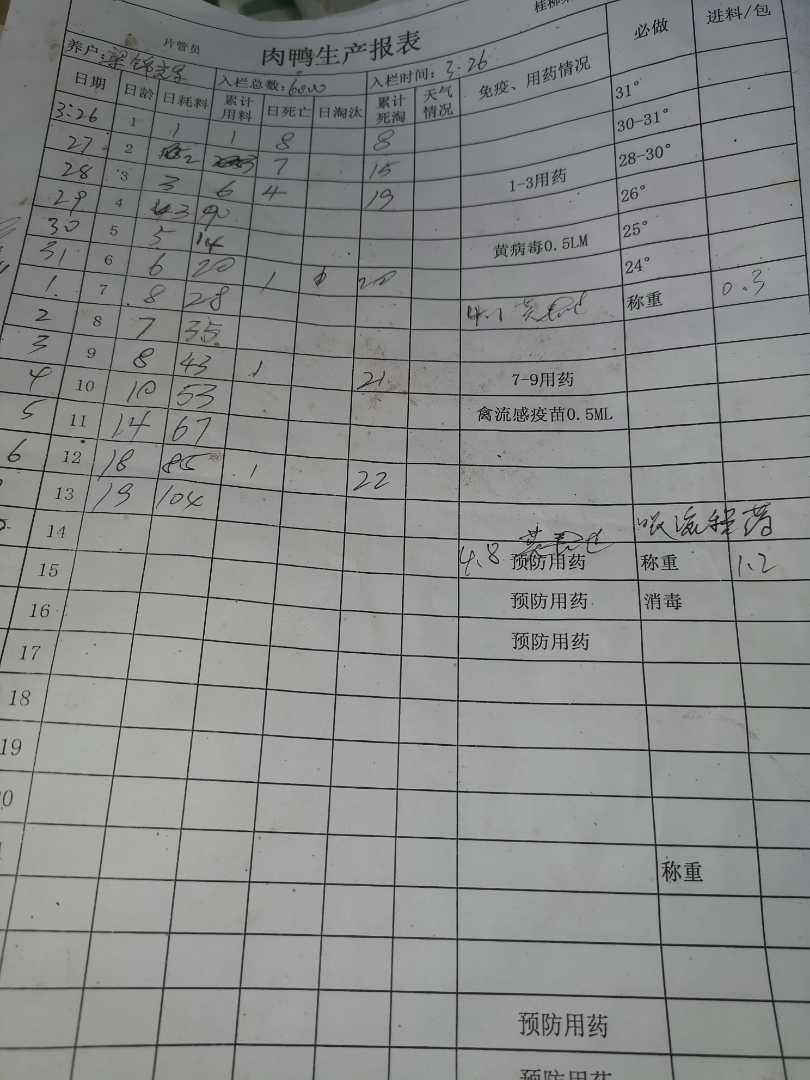 桂柳
肉鸭生产报表
片管员
养户: 梁锦 入栏总数: 6000 入栏时间: 3.26 免疫、用药情况 必做 进料/包
日期 日龄 日耗料 累计用料 日死亡 日淘汰 累计死淘 天气情况
3.26 1 1 1 8 8 31°
27 2 2 3 7 15 30-31°
28 3 3 6 4 19 1-3用药 28-30°
29 4 3 9 26°
30 5 5 14 黄病毒0.5LM 25°
31 6 6 20 1 20 24°
1. 7 8 28 4.1 称重 0.3
2 8 7 35
3 9 8 43 1 21 7-9用药
4 10 10 53 禽流感疫苗0.5ML
5 11 14 67
6 12 18 85 1 22
13 19 104
14
15 4.8 预防用药 称重 1.2
16 预防用药 消毒
17 预防用药
18
19
称重
预防用药
预防用药